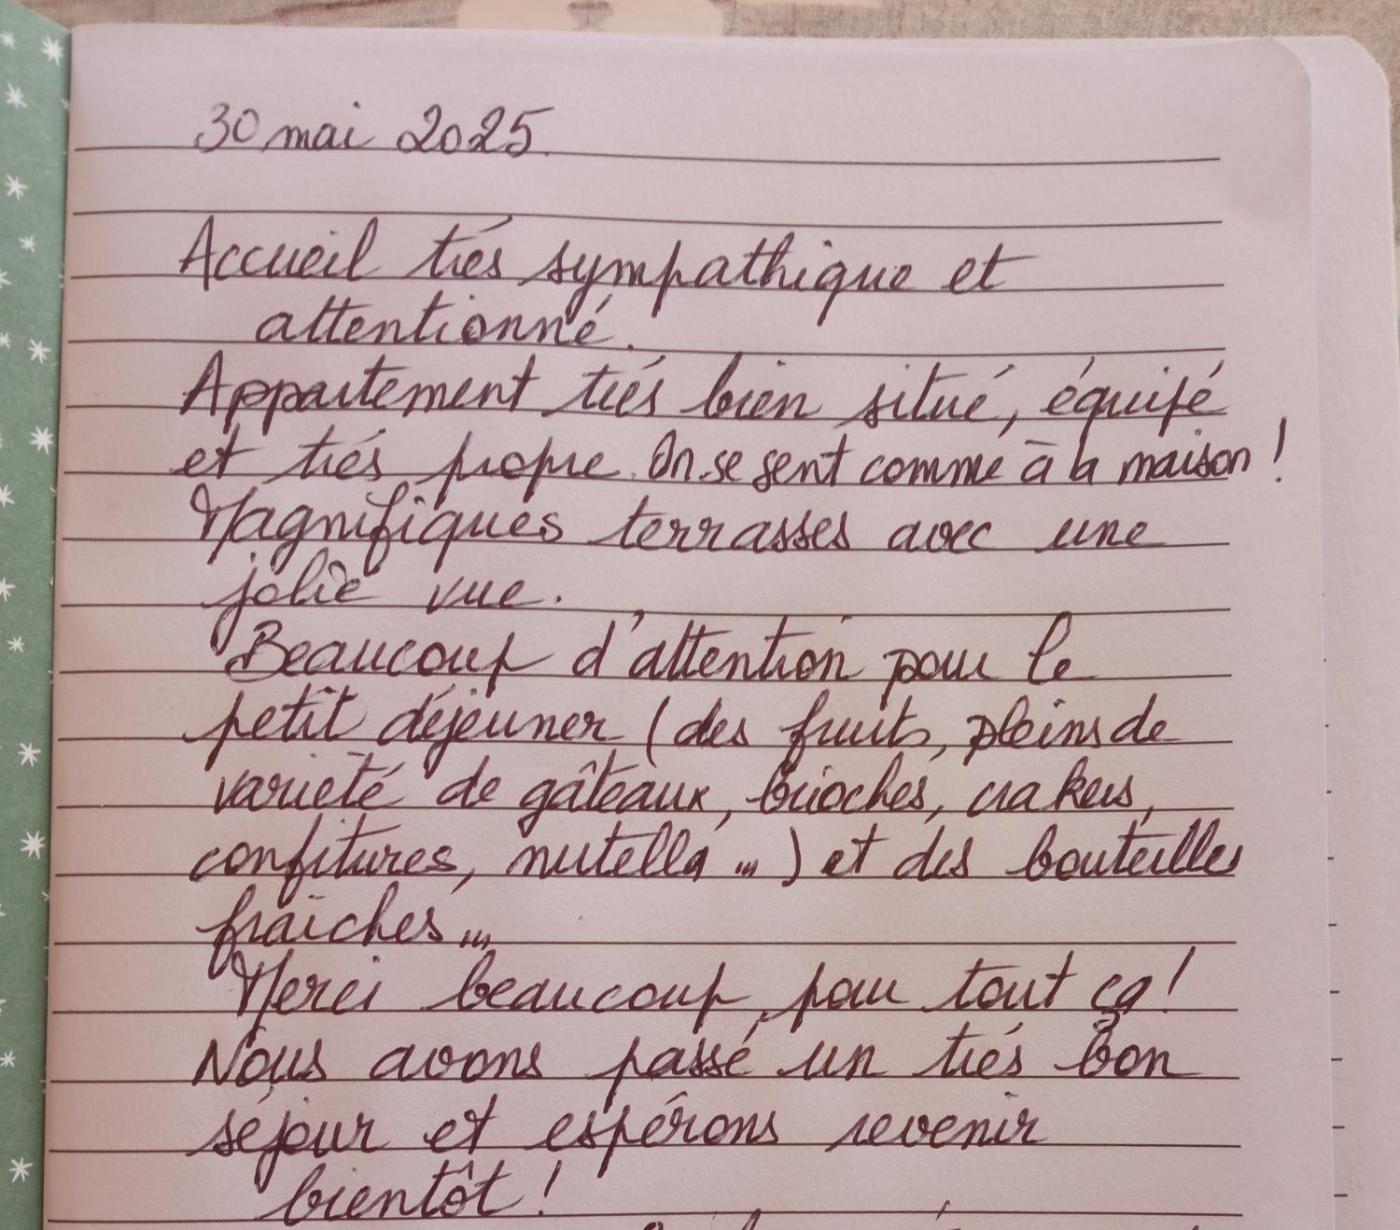 30 mai 2025.
Accueil trés sympathique et
attentionné.
Appartement trés bien situé, équipé
et trés propre. On se sent comme à la maison !
Magnifiques terrasses avec une
jolie vue.
Beaucoup d'attention pour le
petit déjeuner (des fruits, pleins de
varieté de gâteaux, brioches, crakers,
confitures, nutella ...) et des bouteilles
fraîches...
Merci beaucoup pour tout ça !
Nous avons passé un trés bon
séjour et espérons revenir
bientôt !